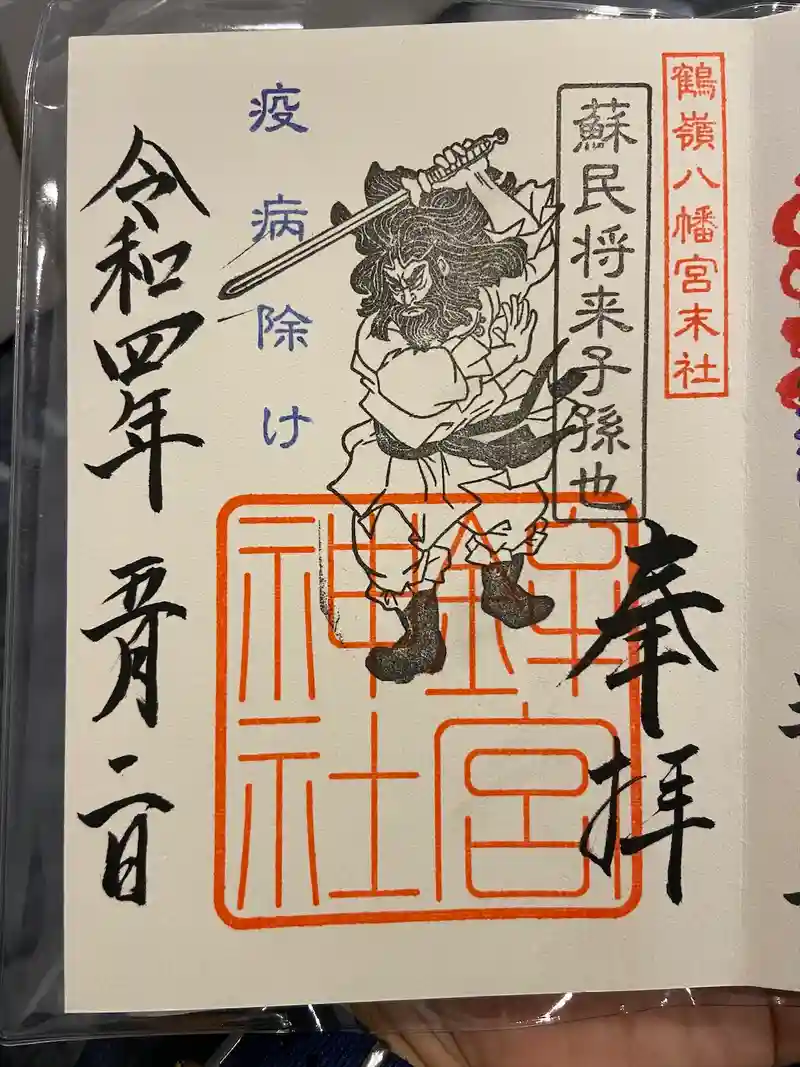 鶴嶺八幡宮末社
蘇民将来子孫也
奉拝
疫病除け
鉾宮
神社
令和四年 五月 二日